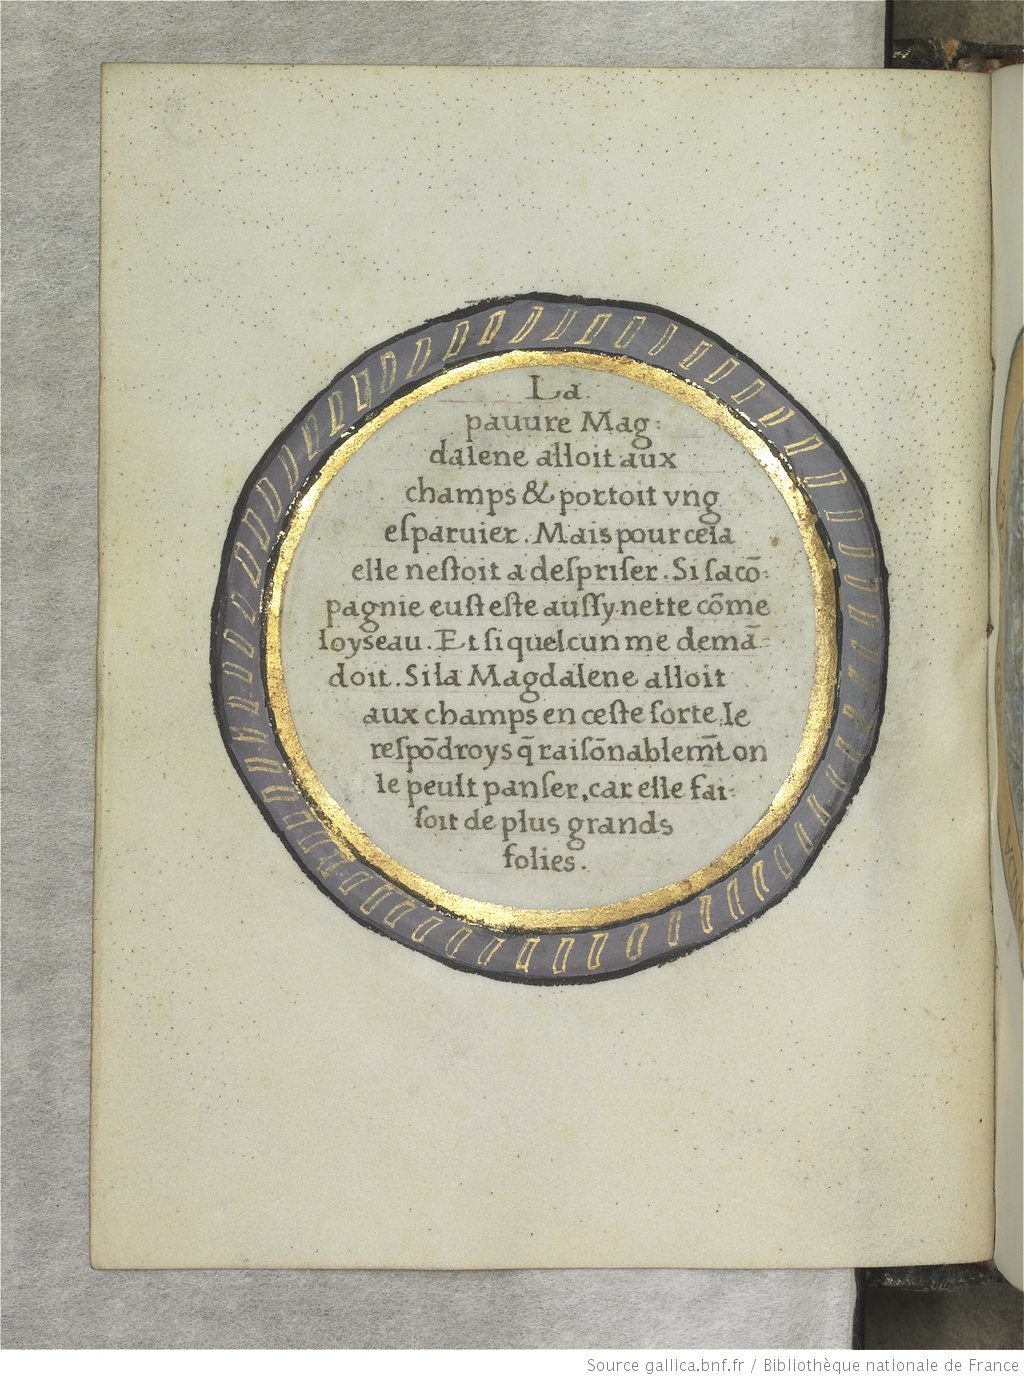 La
pauure Mag:
dalene alloit aux
champs & portoit vng
eſparuier. Mais pour cela
elle neſtoit a deſpriſer. Si ſa cō:
pagnie euſt eſte auſſy nette cōme
loyseau. Et ſi quelcun me demā:
doit. Si la Magdalene alloit
aux champs en ceſte ſorte, Ie
reſpōdroys q̄ raiſōnablem̄t on
le peult panſer, car elle fai:
ſoit de plus grands
folies.
Source gallica.bnf.fr / Bibliothèque nationale de France